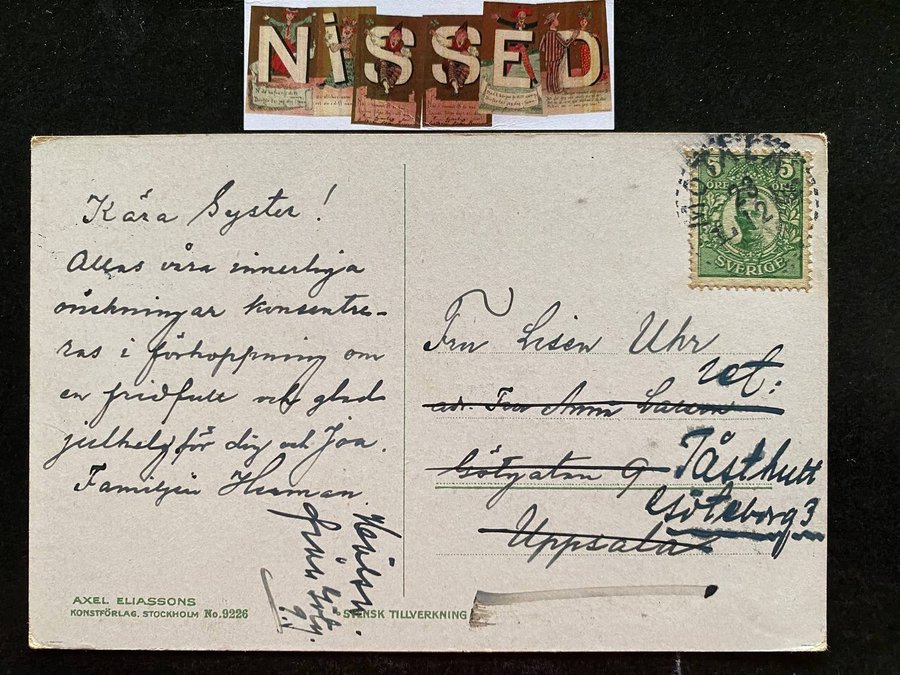 NISSED
Kära Syster!
Allas våra innerliga
önskningar konsentre-
ras i förhoppning om
en fridfull och glad
julhelg för dig och
Familjen Herman.
Hälsn.
från
AXEL ELIASSONS
KONSTFÖRLAG. STOCKHOLM No. 9226
SVENSK TILLVERKNING
5 5
ÖRE ÖRE
SVERIGE
Fru Lisen Uhr
adr. Fru Anna
Götgatan 9
Uppsala
Göteborg 3